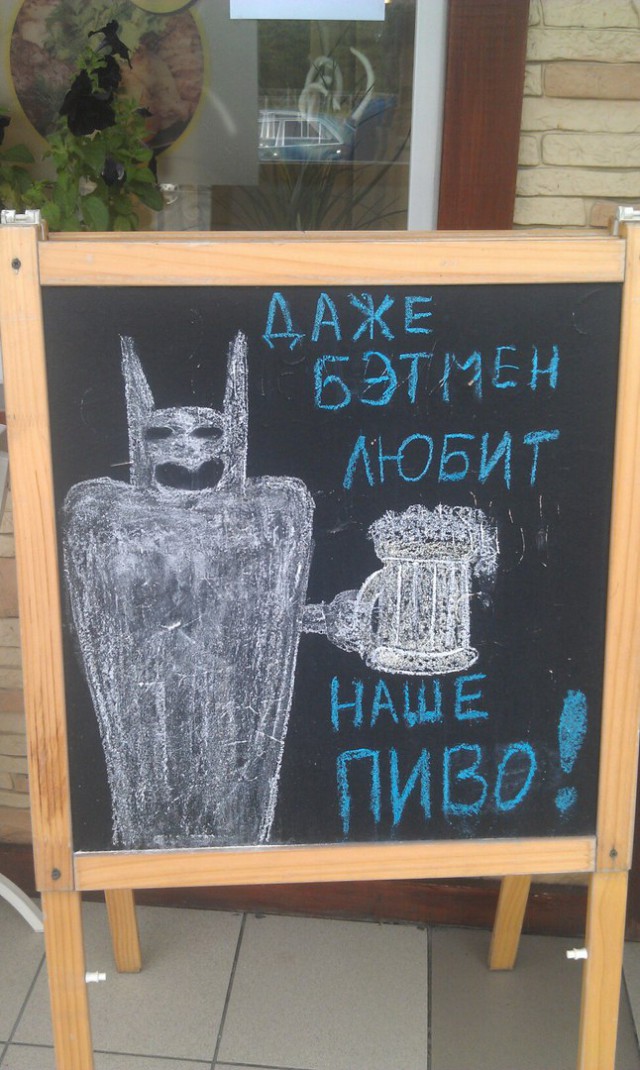 ДАЖЕ
БЭТМЕН
ЛЮБИТ
НАШЕ
ПИВО!